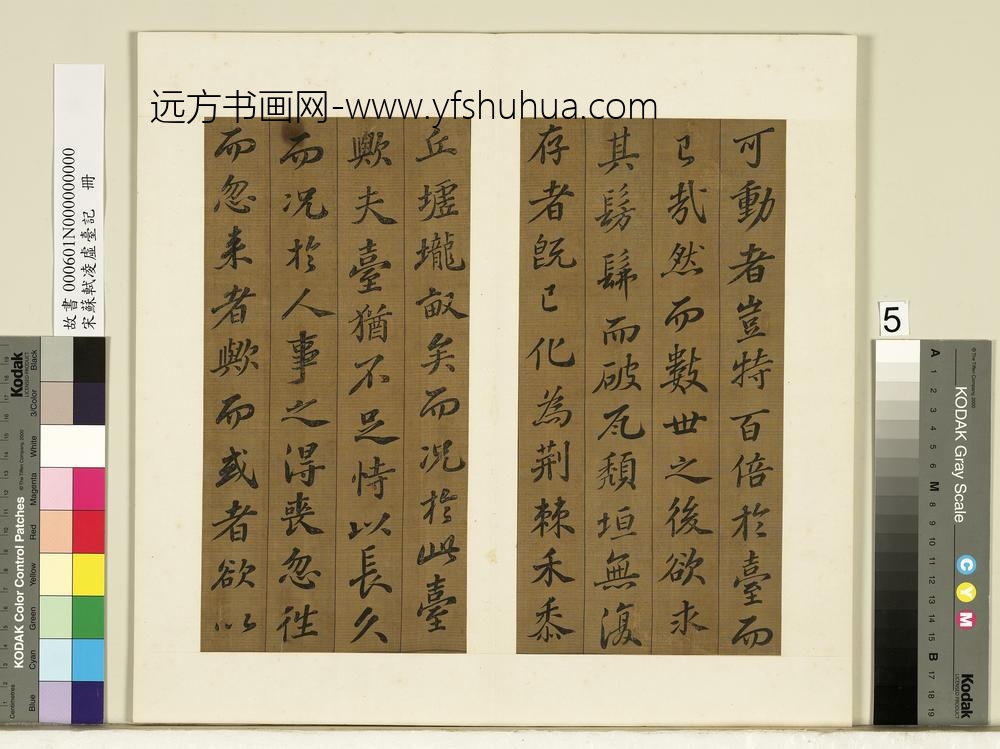 远方书画网-www.yfshuhua.com
可動者豈特百倍於臺而
已哉然而數世之後欲求
其髣髴而破瓦頹垣無復
存者既已化為荆棘禾黍
丘墟壠畝矣而況於此臺
歟夫臺猶不足恃以長久
而況於人事之得喪忽徃
而忽来者歟而或者欲以
故書000601N000000000
宋蘇軾凌虛臺記 冊
5
KODAK Gray Scale
C Y M
Kodak
A 1 2 3 4 5 6 M 8 9 10 11 12 13 14 15 B 17 18 19
Kodak
KODAK Color Control Patches
© The Tiffen Company, 2000
Blue Cyan Green Yellow Red Magenta White 3/Color Black